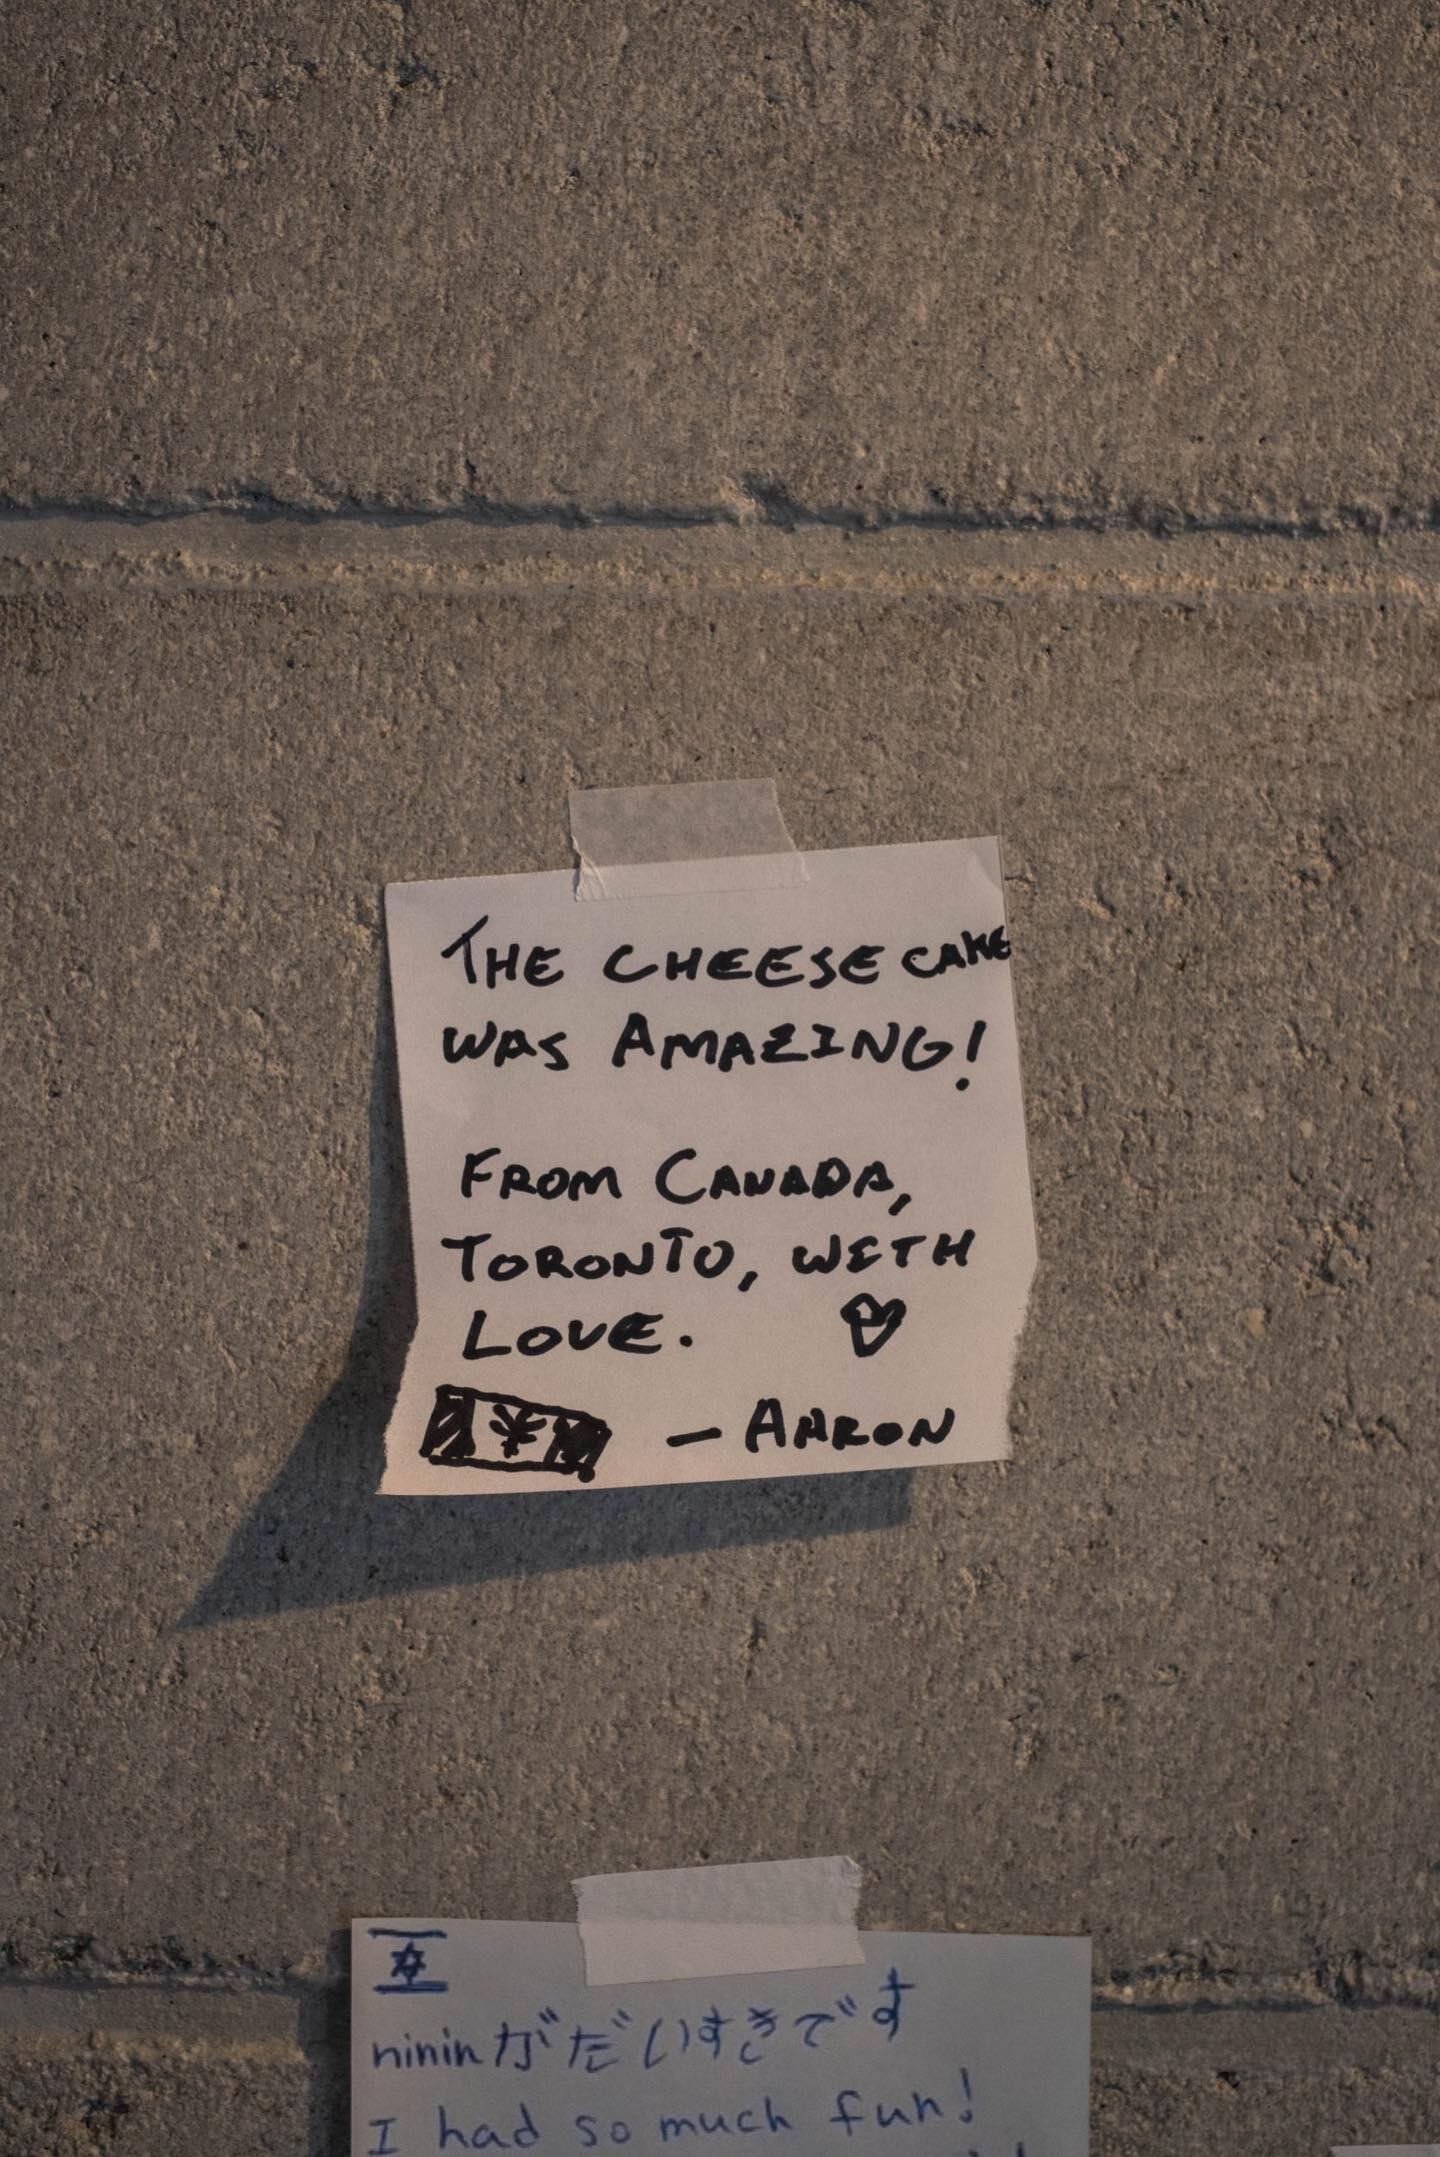 THE CHEESE CAKE
WAS AMAZING!
FROM CANADA,
TORONTO, WITH
LOVE.
– AARON
nininがだいすきです
I had so much fun!